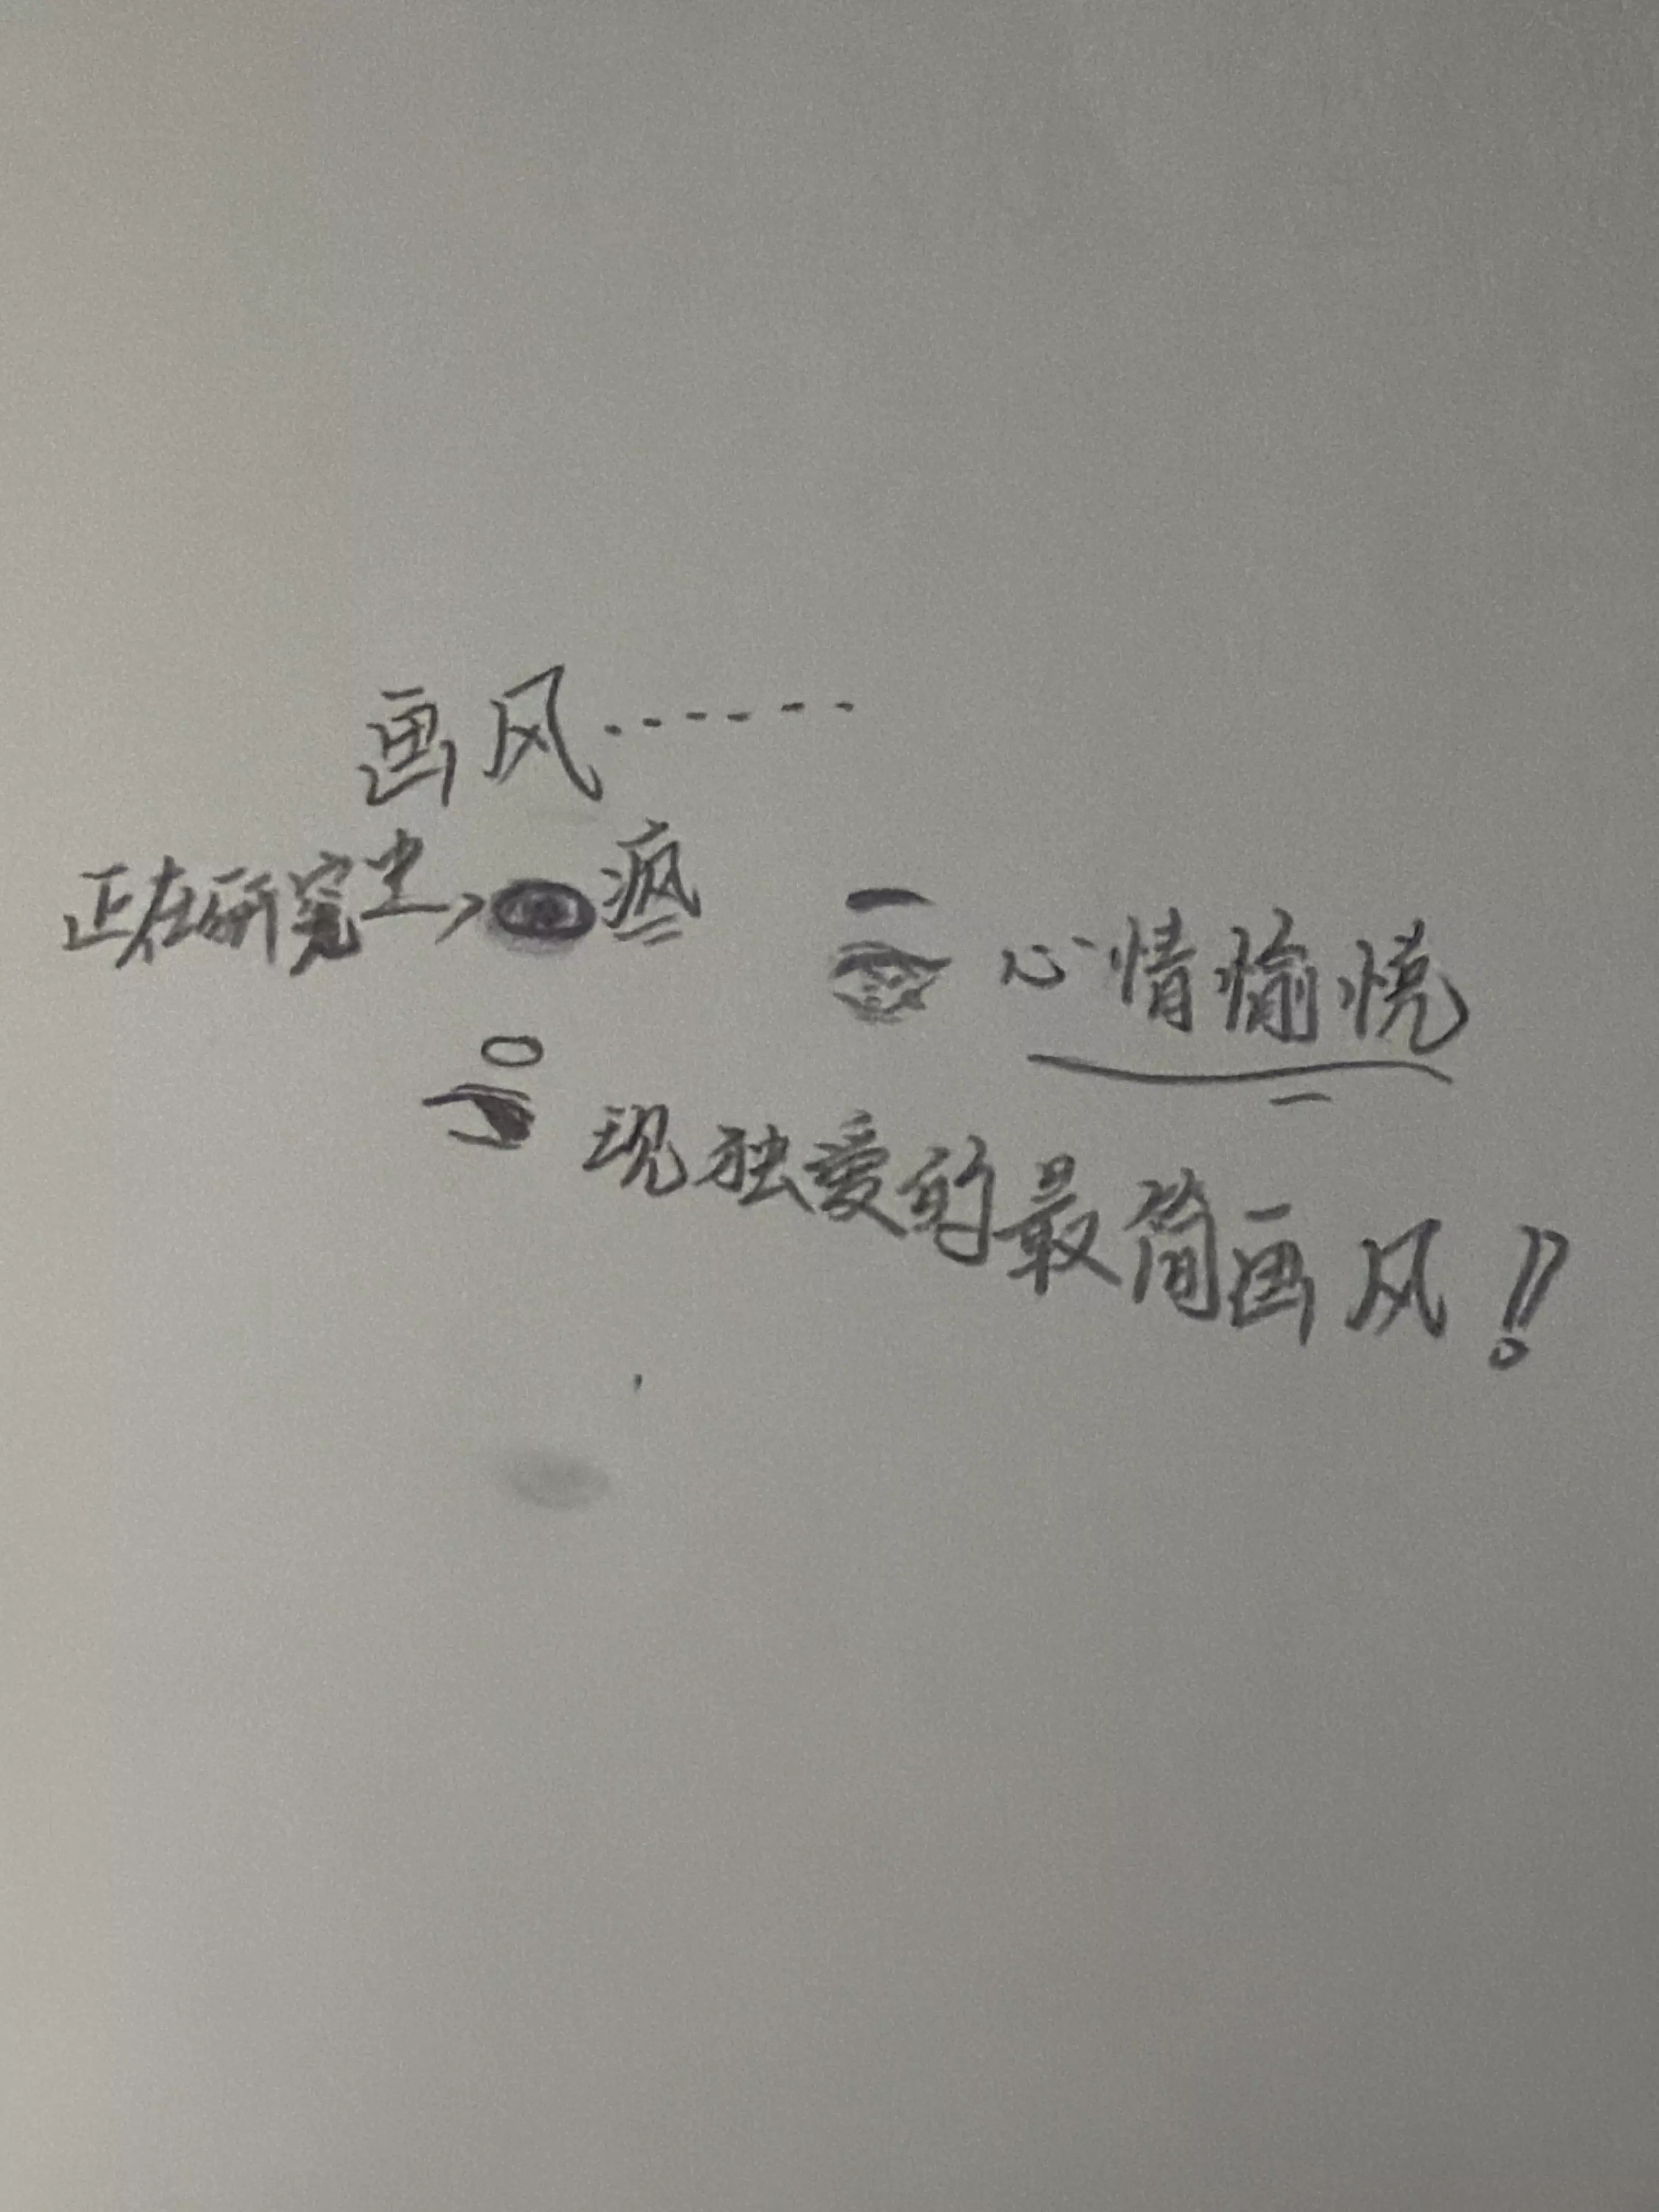 画风……
正在研究中, 疯
心情愉悦
现独爱的最简画风!